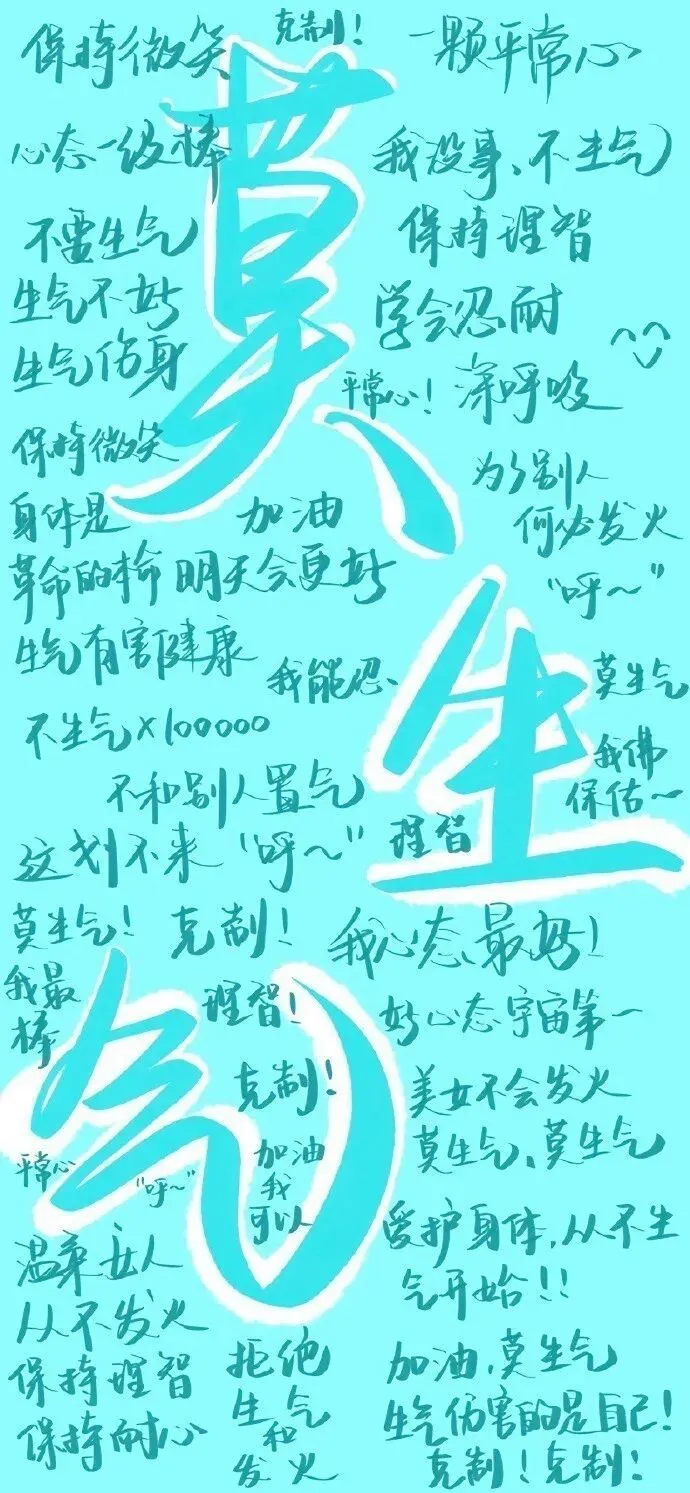 克制！
保持微笑
一颗平常心
心态一级棒
我没事、不生气
不要生气
保持理智
生气不好
学会忍耐
生气伤身
平常心！
深呼吸
保持微笑
为了别人
何必发火
身体是
革命的本命
加油
明天会更好
"呼～"
生气有害健康
我能忍、
莫生气
不生气×100000
我佛
保佑～
不和别人置气
这划不来
"呼～"
理智
莫生气！
克制！
我心态最好！
我最
棒
理智！
好心态宇宙第一
克制！
美女不会发火
莫生气、莫生气
平常心
"呼～"
加油
我
可以
爱护身体，从不生
气开始！！
温柔女人
从不发火
保持理智
保持耐心
拒绝
生气
和
发火
加油，莫生气
生气伤害的是自己！
克制！克制！
莫
生
气